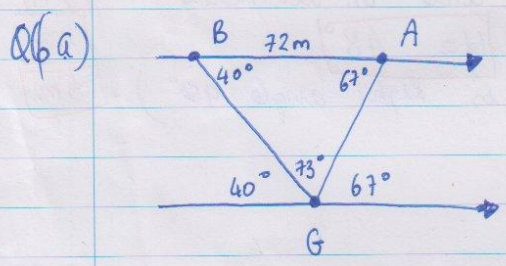 Q(6 a)
B 72m A
40° 67°
73°
40° 67°
G